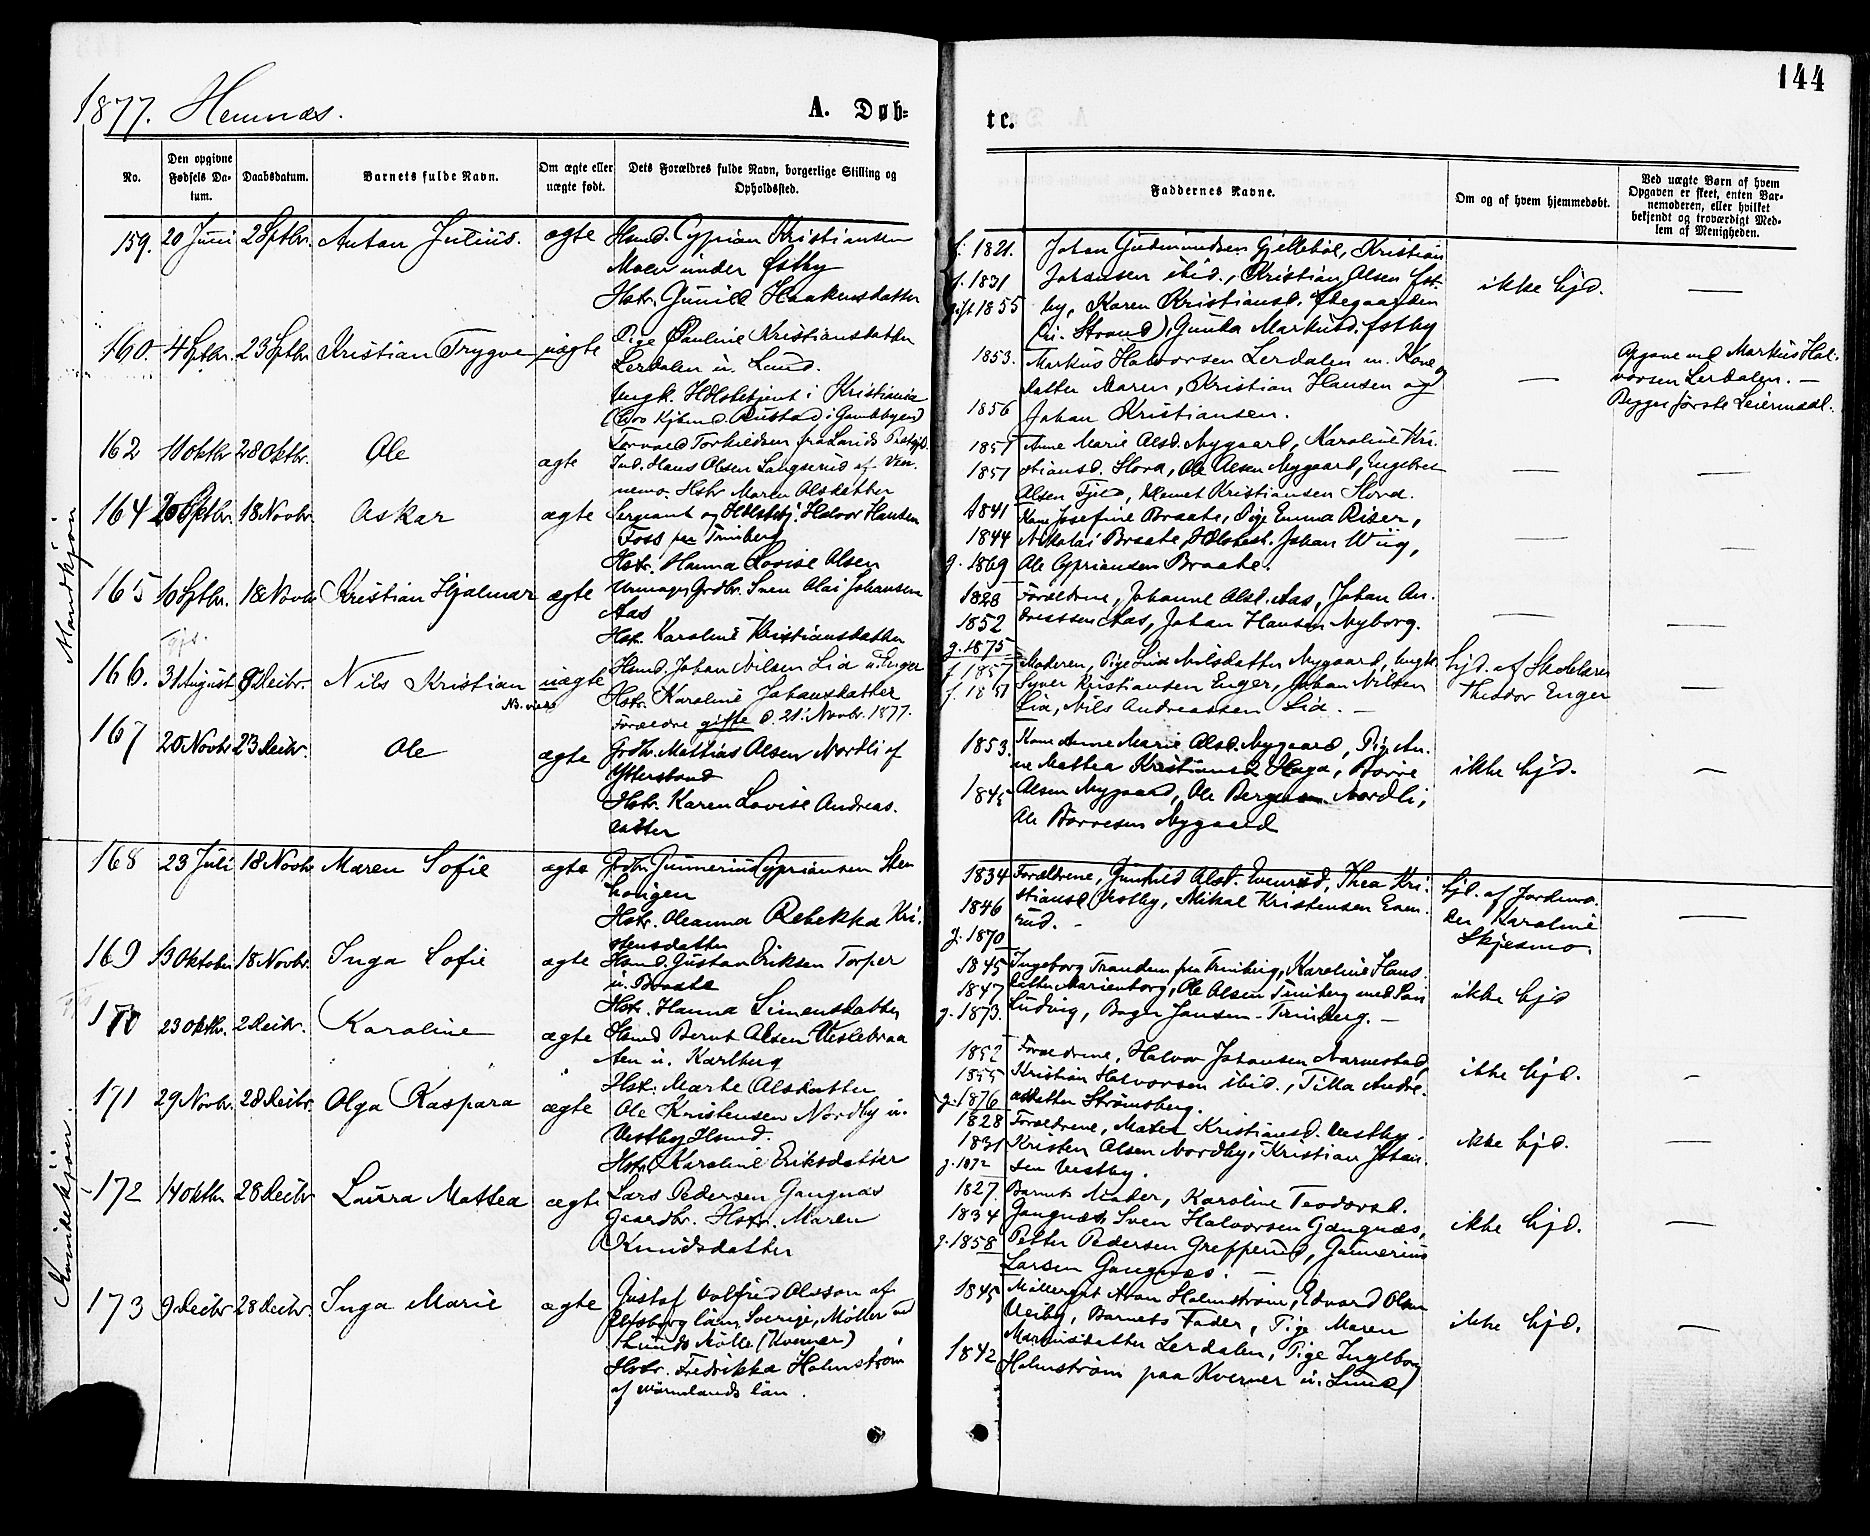 144
1877. Hemnæs.
A. Døb=
tc.
No.
Den opgivne Fødsels Da-
tum.
Daabsdatum.
Barnets fulde Navn.
Om ægte eller
uægte født.
Dets Forældres fulde Navn, borgerlige Stilling og
Opholdssted.
Faddernes Navne.
Om og af hvem hjemmedøbt.
Ved uægte Børn af hvem
Opgaven er skeet, enten Bar-
nemoderen, eller hvilket
bekjendt og troværdigt Med-
lem af Menigheden.
Mandkjøn
159. 20 Juni 2 Septbr. Anton Julius. ægte Hsmd. Cyprian Kristiansen
Moen under Østby
Hstr. Gunild Haakensdatter
f. 1821. Johan Gudmundsen Gjellebøl, Kristian
f. 1831 Johansen ibid., Kristian Olsen Øst-
gift 1855 by, Karen Kristiansd.
(u. Strand), Gunda Markusd. Østby
ikke hjd. —
160. 4 Septbr. 23 Septbr. Kristian Trygve uægte Pige Pauline Kristiansdatter
Lerdalen u. Lund.
Ungk. i Kristiania
1853. Markus Halvorsen Lerdalen m. Kone og
datter Maren, Kristian Hansen og
1856 Johan Kristiansen.
—
Opgave ved Markus Hal-
vorsen Lerdalen. —
Begges første Leiermaal.
162 11 Oktbr 28 Oktbr. Ole ægte
Ind. Hans Olsen Langserud af Ven-
nemo. Hstr Maren Olsdatter
1851 Anne Marie Olsd. Nygaard, Karoline Kri-
1851 stiansd. Slora, Ole Olsen Nygaard, Engebret
Olsen Fjeld, Kristiansen Slora.
— —
164 20 Septbr. 18 Novbr. Oskar ægte Sergeant og Halvor Hansen
Foss paa Trinborg
Hstr. Hanna Lovise Olsen
1841 Kone Josefine Braate, Pige Emma Riser,
1844 Nikolai Braate, Johan Wiig,
g. 1869 Ole Cypriansen Braate.
— —
165 10 Septbr. 18 Novbr Kristian Hjalmar ægte Grdbr. Sven Olai Johansen
Aas
Hstr. Karoline Kristiansdatter
1828 Forældrene, Johanne Olsd. Aas, Johan An-
1852 dreassen Aas, Johan Hansen Nyborg.
g. 1875
— —
166. 31 August 9 Decbr. Nils Kristian uægte Hsmd. Johan Nilsen Lia u. Enger
Hstr. Karoline Johansdatter
Forældre gifte d. 21. Novbr. 1877.
f. 1857 Moderen, Pige Lise Nilsdatter Nygaard, Ungk.
f. 1851 Syver Kristiansen Enger, Johan Nilsen
Lia, Nils Andreassen Lia. —
hjd. af Skolelærer
Theodor Enger
—
167 20 Novbr 23 Decbr. Ole ægte Grdbr. Mathias Olsen Nordli af
Ytterstad
Hstr. Karen Lovise Andreas-
datter
1853. Kone Anne Marie Olsd. Nygaard, Pige An-
ne Mathea Kristiansd Haga, Borre
1845 Olsen Nygaard, Ole Bergersen Nordli,
Ole Borresen Nygaard
ikke hjd. —
Kvindekjøn.
168 23 Juli 18 Novbr Maren Sofie ægte Grdbr. Gunnerius Cypriansen Sten
Hougen
Hstr. Oleanna Rebekka Kri-
stensdatter
1834 Forældrene, Gunhild Olsd. Evenrud, Thea Kri-
1846 stiansd Østby, Mikal Kristensen Even-
g. 1870 rud. —
hjd. af Jordemo-
der Karoline
Skjesmo.
—
169 13 Oktober 18 Novbr. Inga Sofie ægte Hsmd. Gustav Eriksen Torper
u. Braate
Hstr. Hanna Simensdatter
1845 Ingeborg Trandem fra Trinborg, Karoline Hans-
1847 datter Marienborg, Ole Olsen Trinborg med Søn
g. 1873. Ludvig, Bager Jansen - Trinborg. —
ikke hjd
170 23 Oktbr. 2 Decbr. Karoline ægte Hsmd Bernt Olsen Veslebraa
ten u. Karlberg
Hstr. Marte Olsdatter
1852 Forældrene, Halvor Johansen Narvestad,
1855 Kristian Halvorsen ibid., Tilla Andre-
g. 1876 asdatter Strømsberg.
ikke hjd. —
171 29 Novbr. 28 Decbr. Olga Kaspara ægte Ole Kristensen Nordby u.
Vestby Hsmd.
Hstr. Karoline Eriksdatter
1828 Forældrene, Maren Kristiansd. Vestby,
1831 Kristen Olsen Nordby, Kristian Johan-
g. 1872 sen Vestby.
ikke hjd. —
172 14 Oktbr. 28 Decbr Laura Mathea ægte Lars Pedersen Gangnæs
Gaardbr. Hstr. Maren
Knudsdatter
1827. Barnets Moder, Karoline Teodorsd.
1834 Gangnæs, Sven Halvorsen Gangnæs,
g. 1858 Petter Pedersen Grefferud, Gunnerius
Larsen Gangnæs. —
ikke hjd. —
173 9 Decbr 28 Decbr. Inga Marie ægte Gustaf Volfred Olsson af
Elfsborg län, Sverige, Møller ved
Lunds Mølle (Kverner)
Hstr. Fredrikka Holmstrøm
af Wärmlands län.
1845 Møllergut Aron Holmstrøm, Edvard Olsen
Veiby, Barnets Fader, Pige Maren
Markusdatter Lerdalen, Pige Ingeborg
1842 Holmstrøm paa Kverner u. Lund
ikke hjd. —